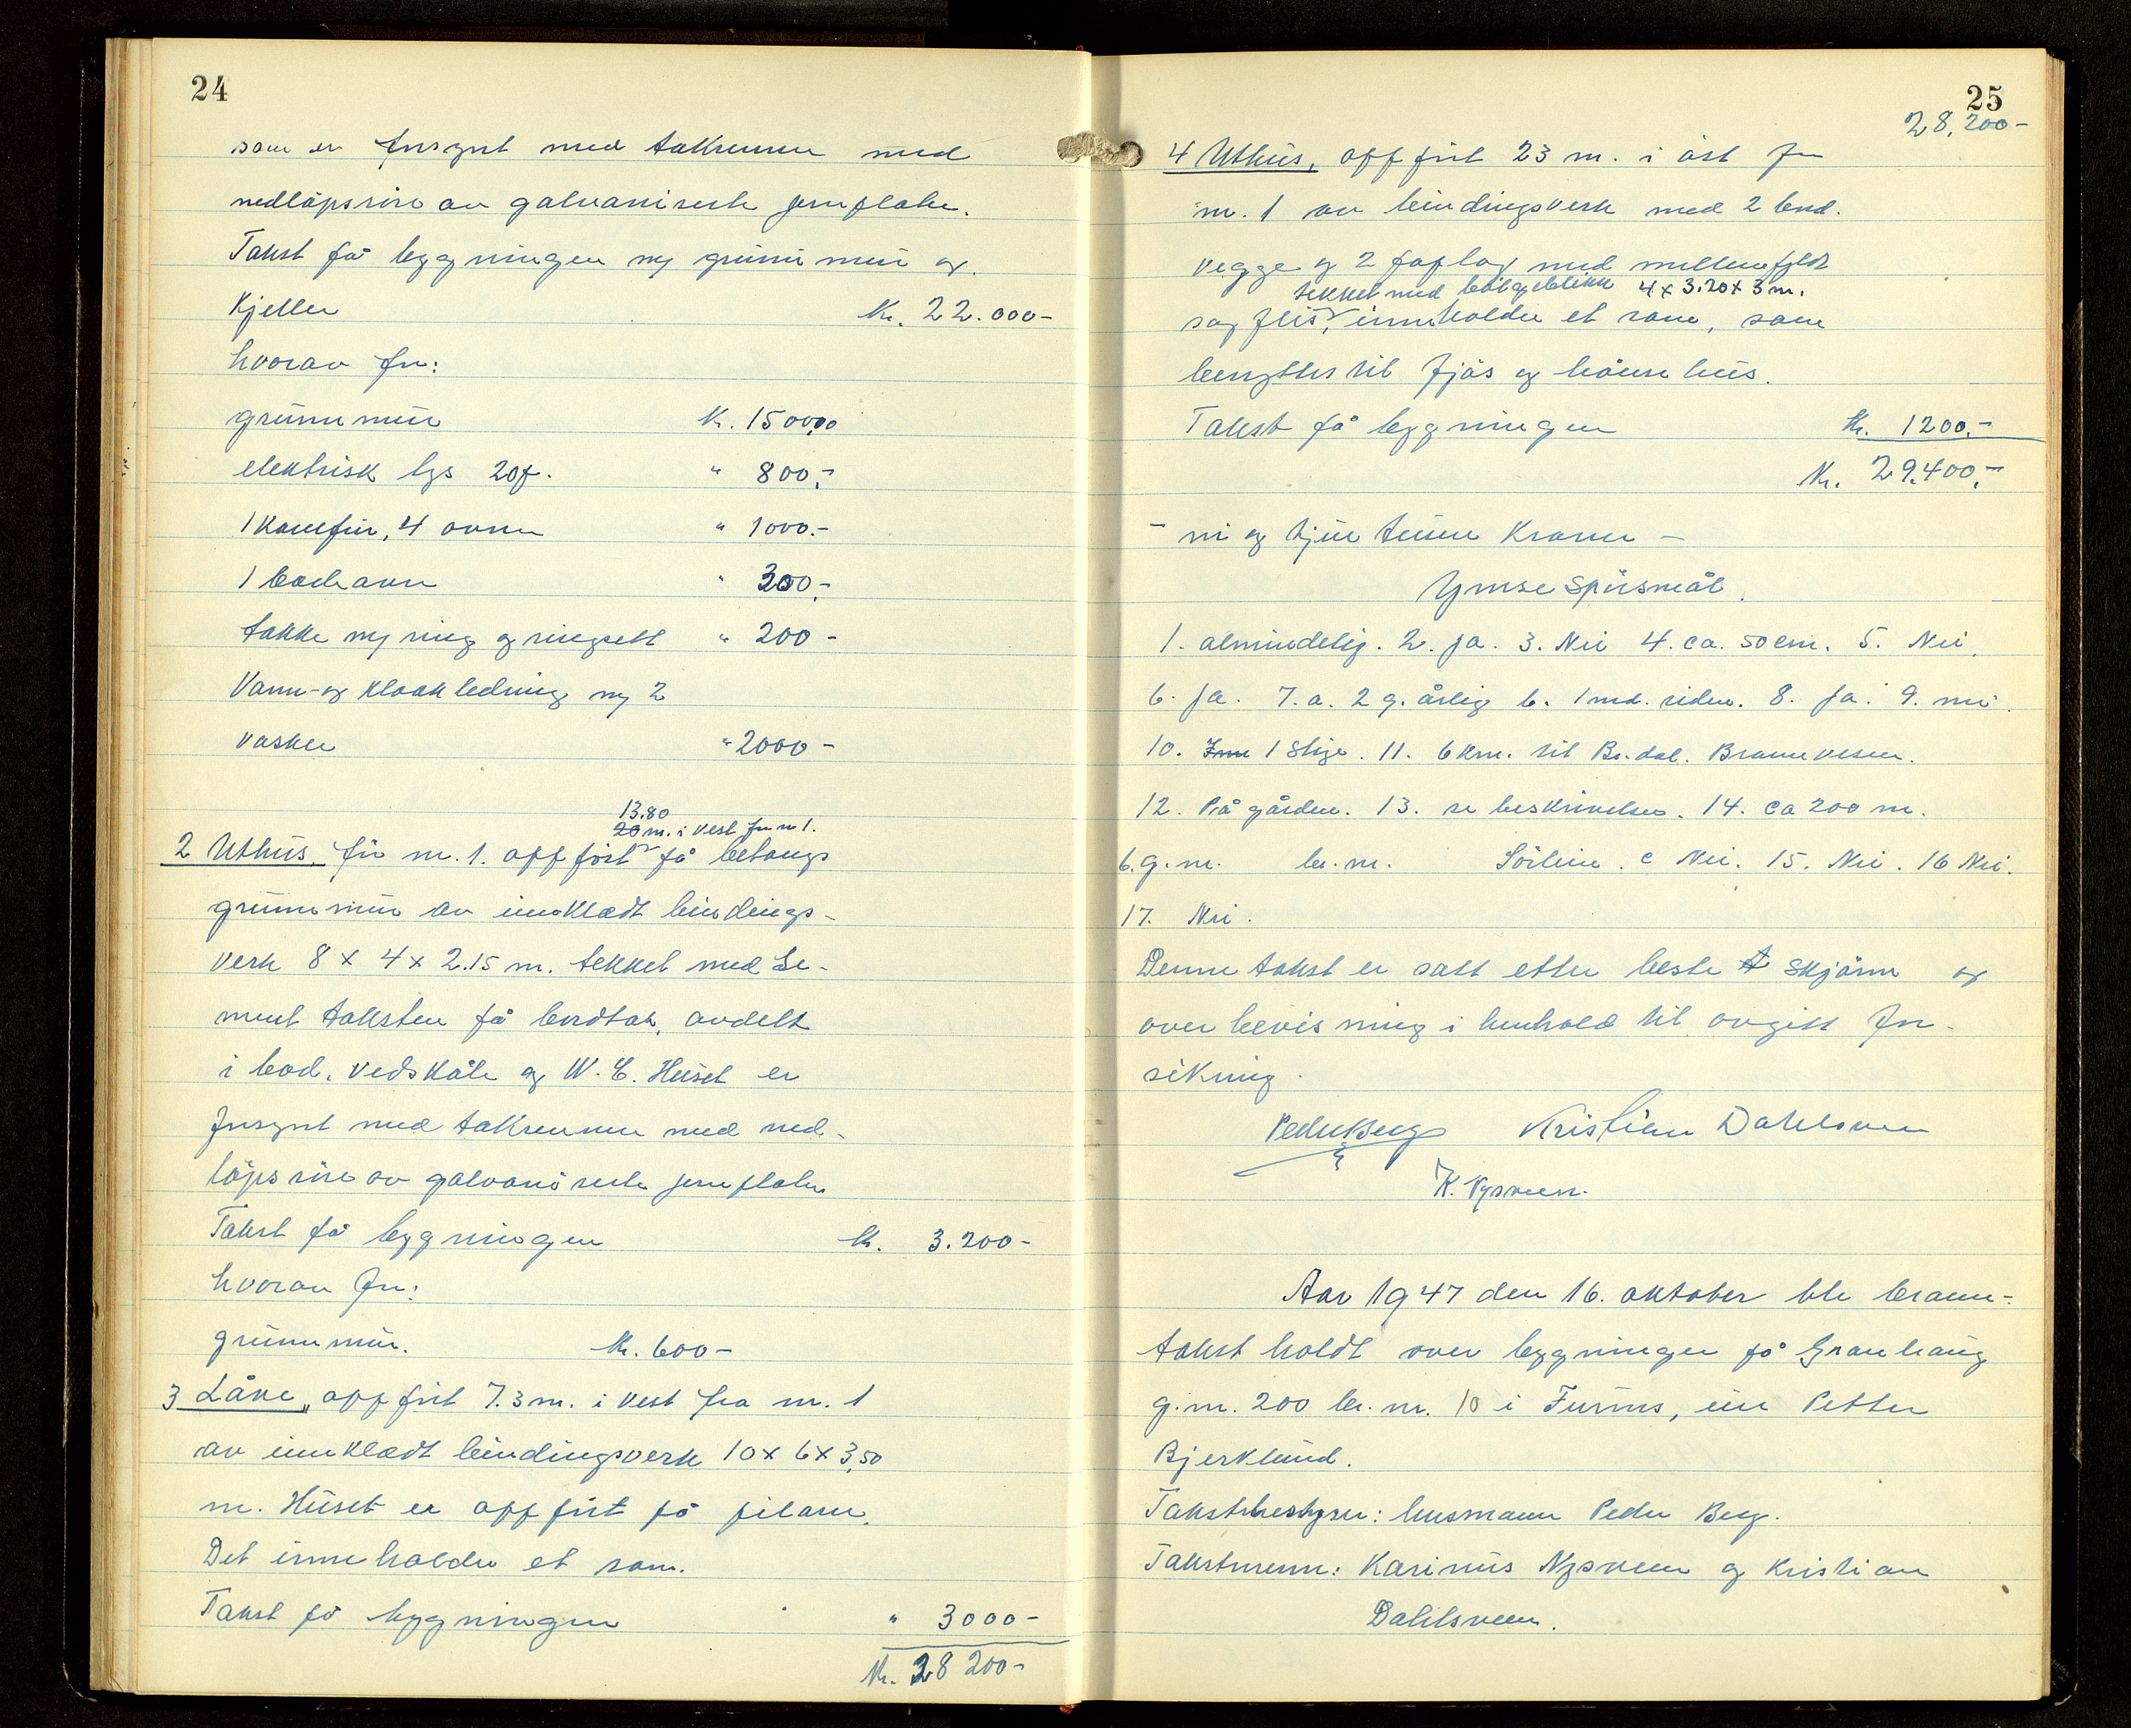 24
som er forsynt med takrenner med
nedløpsrør av galvaniserte jernplater.
Takst på bygningen og grunnmur og
Kjeller Kr. 22.000-
hvorav for:
grunnmur Kr. 1500,00
elektrisk lys 20p. " 800,-
1 Komfur, 4 ovner " 1000.-
1 badeovn " 300,-
takke og ring og ringsett " 200-
Vann- og kloakledning og 2
vasker " 2000-
13.80
20 m. i vest for nr 1.
2 Uthus, for nr. 1. oppført på betongs
grunnmur av innklædt bindings-
verk 8 x 4 x 2.15 m. tekket med Se-
ment taksten på bordtak, avdelt
i bod, vedskåle og W.C. Huset er
forsynt med takrenner med ned-
løpsrør av galvaniserte jernplater
Takst på bygningen Kr. 3.200-
hvorav for:
grunnmur. Kr. 600-
3 Låve, oppført 7.3 m. i vest fra nr. 1
av innklædt bindingsverk 10 x 6 x 3,50
m. Huset er oppført på pilarer.
Det inneholder et rom.
Takst på bygningen " 3000-
Kr. 28 200-
25
28,200-
4 Uthus, oppført 23 m. i øst for
nr. 1 av bindingsverk med 2 bord.
vegge og 2 paplag med mellemfyldt
tekket med bølgeblikk 4 x 3.20 x 3 m.
sagflis, inneholder et rom, som
benyttes til fjøs og hønsehus.
Takst på bygningen Kr. 1200,-
Kr. 29.400,-
- ni og tjue tusen Kroner -
Ymse spursmål.
1. almindelig. 2. ja. 3. Nei 4. ca. 50 cm. 5. Nei.
6. ja. 7. a. 2 g. årlig b. 1 md. siden. 8. ja. 9. nei.
10. 1 Stige. 11. 6 km. til Br.dal. Brannvesen.
12. På gården. 13. se beskrivelsen. 14. ca 200 m.
b. g.nr. br.nr. c Nei. 15. Nei. 16 Nei.
17. Nei.
Denne takst er satt efter beste skjønn og
overbevisning i henhold til avgitt for-
sikring.
Peder Berg Kristian Dahlsveen
K. Nysveen.
Aar 1947 den 16. oktober ble brann-
takst holdt over bygninger på Granhaug
g.nr. 200 br. nr. 10 i Furnes, eier Petter
Bjerklund.
Takstbestyrer: lensmann Peder Berg.
Takstmenn: Karinus Nysveen og Kristian
Dahlsveen.